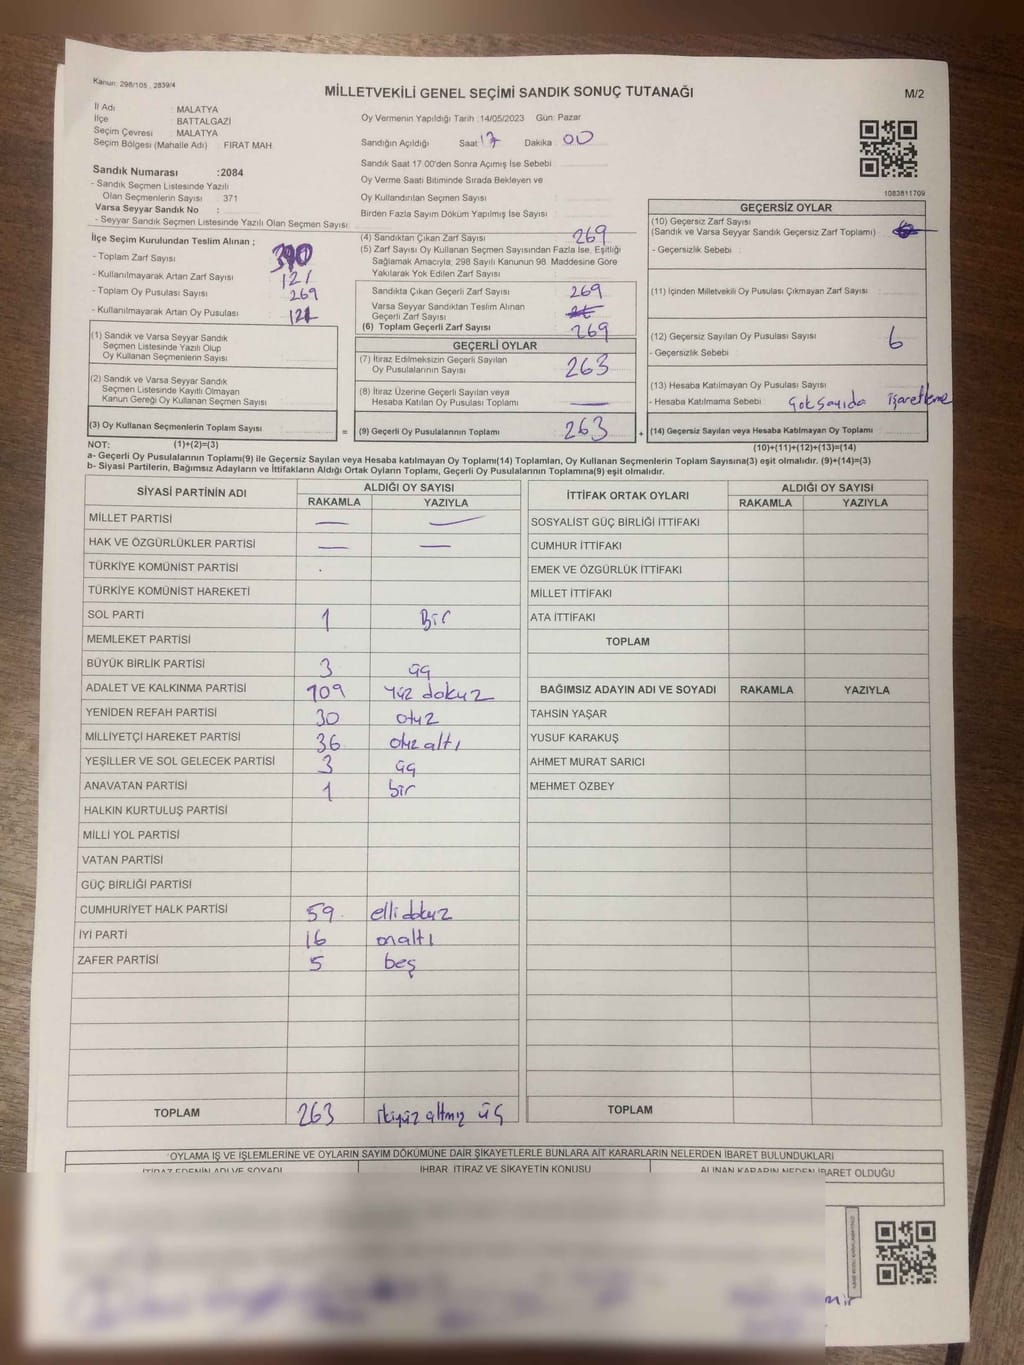 Kanun: 298/105 , 2839/4
MİLLETVEKİLİ GENEL SEÇİMİ SANDIK SONUÇ TUTANAĞI
M/2
İl Adı : MALATYA
İlçe : BATTALGAZİ
Seçim Çevresi : MALATYA
Seçim Bölgesi (Mahalle Adı) : FIRAT MAH.
Oy Vermenin Yapıldığı Tarih :14/05/2023 Gün: Pazar
Sandığın Açıldığı Saat 17 Dakika 00
Sandık Saat 17:00'den Sonra Açılmış İse Sebebi :
Oy Verme Saati Bitiminde Sırada Bekleyen ve
Oy Kullandırılan Seçmen Sayısı :
Birden Fazla Sayım Döküm Yapılmış İse Sayısı :
Sandık Numarası :2084
- Sandık Seçmen Listesinde Yazılı
Olan Seçmenlerin Sayısı : 371
Varsa Seyyar Sandık No :
- Seyyar Sandık Seçmen Listesinde Yazılı Olan Seçmen Sayısı:
1083811709
İlçe Seçim Kurulundan Teslim Alınan ;
- Toplam Zarf Sayısı : 390
- Kullanılmayarak Artan Zarf Sayısı : 121
- Toplam Oy Pusulası Sayısı : 269
- Kullanılmayarak Artan Oy Pusulası : 121
(1) Sandık ve Varsa Seyyar Sandık
Seçmen Listesinde Yazılı Olup
Oy Kullanan Seçmenlerin Sayısı :
(2) Sandık ve Varsa Seyyar Sandık
Seçmen Listesinde Kayıtlı Olmayan
Kanun Gereği Oy Kullanan Seçmen Sayısı :
(3) Oy Kullanan Seçmenlerin Toplam Sayısı :
(4) Sandıktan Çıkan Zarf Sayısı : 269
(5) Zarf Sayısı Oy Kullanan Seçmen Sayısından Fazla İse, Eşitliği
Sağlamak Amacıyla, 298 Sayılı Kanunun 98. Maddesine Göre
Yakılarak Yok Edilen Zarf Sayısı :
Sandıkta Çıkan Geçerli Zarf Sayısı : 269
Varsa Seyyar Sandıktan Teslim Alınan
Geçerli Zarf Sayısı :
(6) Toplam Geçerli Zarf Sayısı : 269
GEÇERLİ OYLAR
(7) İtiraz Edilmeksizin Geçerli Sayılan
Oy Pusulalarının Sayısı : 263
(8) İtiraz Üzerine Geçerli Sayılan veya
Hesaba Katılan Oy Pusulası Toplamı : —
= (9) Geçerli Oy Pusulalarının Toplamı : 263 +
GEÇERSİZ OYLAR
(10) Geçersiz Zarf Sayısı
(Sandık ve Varsa Seyyar Sandık Geçersiz Zarf Toplamı) :
- Geçersizlik Sebebi :
(11) İçinden Milletvekili Oy Pusulası Çıkmayan Zarf Sayısı :
(12) Geçersiz Sayılan Oy Pusulası Sayısı : 6
- Geçersizlik Sebebi :
(13) Hesaba Katılmayan Oy Pusulası Sayısı :
- Hesaba Katılmama Sebebi : Çok Sayıda işaretleme
(14) Geçersiz Sayılan veya Hesaba Katılmayan Oy Toplamı :
NOT: (1)+(2)=(3)
(10)+(11)+(12)+(13)=(14)
a- Geçerli Oy Pusulaları Toplamı(9) ile Geçersiz Sayılan veya Hesaba katılmayan Oy Toplamı(14) Toplamları, Oy Kullanan Seçmenlerin Toplam Sayısına(3) eşit olmalıdır. (9)+(14)=(3)
b- Siyasi Partilerin, Bağımsız Adayların ve İttifakların Aldığı Ortak Oyların Toplamı, Geçerli Oy Pusulalarının Toplamına(9) eşit olmalıdır.
SİYASİ PARTİNİN ADI ALDIĞI OY SAYISI
RAKAMLA YAZIYLA
MİLLET PARTİSİ — —
HAK VE ÖZGÜRLÜKLER PARTİSİ — —
TÜRKİYE KOMÜNİST PARTİSİ
TÜRKİYE KOMÜNİST HAREKETİ
SOL PARTİ 1 Bir
MEMLEKET PARTİSİ
BÜYÜK BİRLİK PARTİSİ 3 üç
ADALET VE KALKINMA PARTİSİ 109 yüz dokuz
YENİDEN REFAH PARTİSİ 30 otuz
MİLLİYETÇİ HAREKET PARTİSİ 36 otuz altı
YEŞİLLER VE SOL GELECEK PARTİSİ 3 üç
ANAVATAN PARTİSİ 1 bir
HALKIN KURTULUŞ PARTİSİ
MİLLİ YOL PARTİSİ
VATAN PARTİSİ
GÜÇ BİRLİĞİ PARTİSİ
CUMHURİYET HALK PARTİSİ 59 elli dokuz
İYİ PARTİ 16 onaltı
ZAFER PARTİSİ 5 beş
TOPLAM 263 ikiyüz altmış üç
İTTİFAK ORTAK OYLARI ALDIĞI OY SAYISI
RAKAMLA YAZIYLA
SOSYALİST GÜÇ BİRLİĞİ İTTİFAKI
CUMHUR İTTİFAKI
EMEK VE ÖZGÜRLÜK İTTİFAKI
MİLLET İTTİFAKI
ATA İTTİFAKI
TOPLAM
BAĞIMSIZ ADAYIN ADI VE SOYADI RAKAMLA YAZIYLA
TAHSİN YAŞAR
YUSUF KARAKUŞ
AHMET MURAT SARICI
MEHMET ÖZBEY
TOPLAM
OYLAMA İŞ VE İŞLEMLERİNE VE OYLARIN SAYIM DÖKÜMÜNE DAİR ŞİKAYETLERLE BUNLARA AİT KARARLARIN NELERDEN İBARET BULUNDUKLARI
İTİRAZ EDENİN ADI VE SOYADI İHBAR, İTİRAZ VE ŞİKAYETİN KONUSU ALINAN KARARIN NEDEN İBARET OLDUĞU